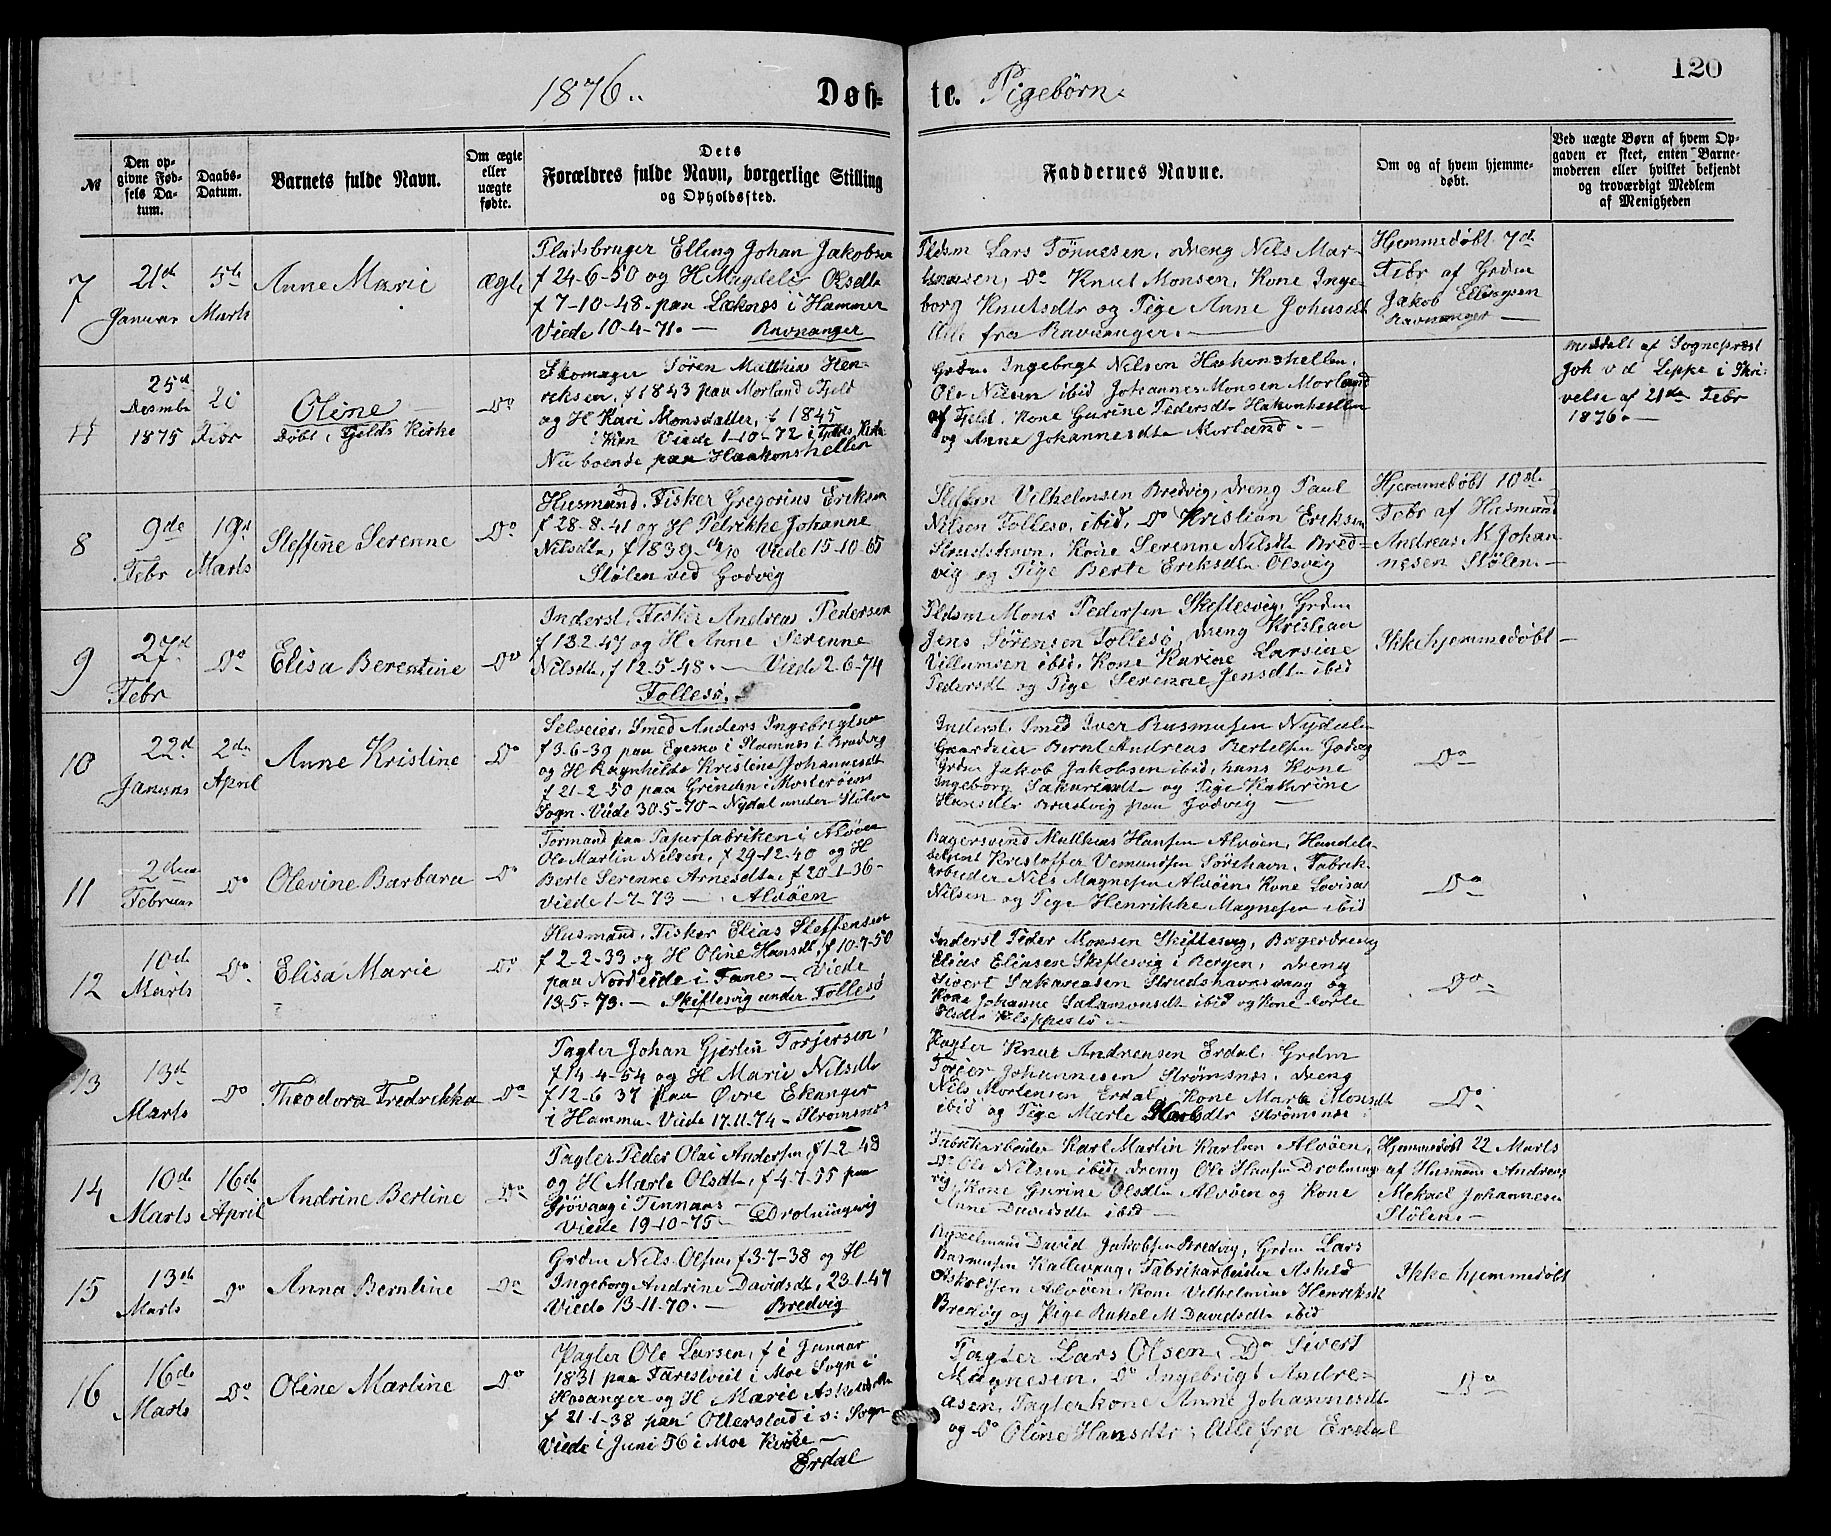 120
1876. Døb- te. Pigebørn.
№
Den op-
givne Fød-
sels Da-
tum.
Daabs-
Datum.
Barnets fulde Navn.
Om ægte
eller
uægte
fødte.
Dets
Forældres fulde Navn, borgerlige Stilling
og Opholdssted.
Faddernes Navne.
Om og af hvem hjemme-
døbt.
Ved uægte Børn af hvem Op-
gaven er skeet, enten Barne-
moderen eller hvilket bekjendt
og troværdigt Medlem
af Menigheden
7
21de
Januar
5te
Marts
Anne Marie
ægte
Pladsbruger Elling Johan Jakobsen
f 24-6-50 og H Magdele Olsdtr
f 7-10-48 paa Leknes i Hammer
Viede 10-4-71. — Ravnanger
Pldsm Lars Tönnesen, dreng Nils Mar-
Do Knut Monsen, Kone Inge-
borg Knutsdtr og Pige Anne Johansdt
Alle fra Ravnanger. —
Hjemmedøbt 7de
Febr af Grdm
Jakob Ellingsen
Ravnanger —
25de
Desember
1875
20
Febr
Oline
Døbt i Fjelds Kirke
Do
Skomager Sören Matthias Hen-
riksen, f 1843 paa Morland i Fjeld
og H Kari Monsdatter, f 1845
Viede 1-10-72 i Fjelds Kirke
Nu boende paa Haakonshellen
Grdm Ingebrigt Nilsen Hakonshellen,
Ole Nilsen ibid Johannes Monsen Morland
af Fjeld. Kone Gurine Pedersdtr Hakonhellen
og Anne Johannesdtr Morland. —
meddelt af Sogneprest
Joh v d Lippe i Skri-
velse af 21de Febr
1876. —
8
9de
Febr
19de
Marts
Steffine Serenne
Do
Husmand, Fisker Gregorius Eriksen
f 28-8-41 og H Petrikke Johanne
Nilsdtr, f 1839 Viede 15-10-65
Stølen ved Godvig
Steffen Vilhelmsen Bredvig, dreng Paul
Nilsen Follesø, ibid, Do Kristian Eriksen
Strudshavn, Kone Serenne Nilsdtr Bred-
vig og Pige Berte Eriksdtr Olsvig
Hjemmedöbt 10de
Febr af Husmand
Andreas M Johan-
nesen Stølen. —
9
27de
Febr
Do
Elisa Berentine
Do
Inderst, Fisker Andreas Pedersen
f 13.2-47 og H Anne Serenne
Nilsdtr, f 12-5-48. — Viede 2-6-74
Follesö.
Pldsm Mons Pedersen Skiftesvig, Grdm
Jens Sörensen Follesö, dreng Kristian
Villumsen ibid, Kone Karine Larsine
Pedersdtr og Pige Serenne Jensdtr ibid
Ikke hjemmedöbt —
10
22de
Januar
2den
April
Anne Kristine
Do
Selveier, Smed Anders Ingebregtsen
f 3-6-39 paa i Stamnes i Bruvig
og H Ragnhilde Kristine Johannesdt
f 21-2-50 paa Grinden i Mosterøens
Sogn. Viede 30-5-70 — Nydal under Stölen
Inderst, Smed Iver Rasmusen Nydalen
Gaardeier Bernt Andreas Bertelsen Godvig
Grdm Jakob Jakobsen ibid, hans Kone
Ingeborg Sakariasdtr og Pige Kathrine
Hansdtr Bredvig paa Godvig —
Do
11
2den
Februar
Do
Olevine Barbara
Do
Formand paa Papirfabriken i Alvöen
Ole Martin Nilsen, f 29-12-40 og H
Berte Serenne Arnesdtr, f 20-1-36-
Viede 1-7-73 — Alvöen
Bagersvend Matthias Hansen Alvöen, Handels-
betjent Kristoffer Vemundsen Sörshavn, Fabrik-
arbeider Nils Magnesen Alvöen, Kone Lovisa
Nilsen og Pige Henrikke Magnesen ibid
Do
12
10de
Marts
Do
Elisa Marie
Do
Husmand, Fisker Elias Steffensen
f 2-2-33 og H Oline Hansdt, f 10-7-50
paa Nordeide i Fane — Viede
13-5-73. — Skiftesvig under Follesö
Inderst Peder Monsen Skiftesvig, Bagerdreng
Elias Eliasen Skiftesvig i Bergen, dreng
Sivert Sakariasen Strudshavnsvaag og
Kone Johanne Salamonsdt ibid og Kone Dorte
Elsdtr Kleppestö —
Do
13
13de
Marts
Do
Theodora Fredrikka
Do
Pagter Johan Gjertin Torjersen,
f 14-4-54 og H Marie Nilsdtr
f 12-6 37 paa Øvre Ekanger
i Hammer. Viede 17-11-74 — Strømsnes
Pagter Knut Andreasen Erdal, Grdm
Torjer Johannesen Strømsnes, dreng
Nils Mortensen Erdal, Kone Marta Monsdt
ibid og Pige Marte Strømsnes
Do
14
10de
Marts
16de
April
Andrine Bertine
Do
Pagter Peder Olai Andersen, f 1-2 48
og H Marte Olsdtr, f 4-7-55 paa
i Finnaas —
Viede 19-10-75 — Drotningvig
Fabrikarbeider Karl Martin Karlsen Alvöen,
Do Ole Nilsen ibid, dreng Ole Hansen Drotning-
vig, Kone Gurine Olsdtr Alvöen og Kone
Anne Davidsdtr ibid —
Hjemmedöbt 22 Marts
af Husmand Andreas
Mekael Johannesen
Stölen. —
15
13de
Marts
Do
Anna Berntine
Do
Grdm Nils Olsen f 3-7-38 og H
Ingeborg Andrine Davidsdt, 23-1-47
Viede 13-11-70. — Bredvig
David Jakobsen Bredvig, Grdm Lars
Rasmusen Kallevaag, Fabrikarbeider Askild
Askildsen Alvöen, Kone Vilhelmine Henriksdt
Bredvig og Pige Rakel M Davidsdtr ibid
Ikke hjemmedöbt
16
16de
Marts
Do
Oline Martine
Do
Pagter Ole Larsen, f i Januar
1831 paa Farestveit i Moe Sogn i
Hosanger og H Marie
f 21-1-38 paa Otterstad i s: Sogn
Viede i Juni 56 i Moe Kirke —
Erdal
Pagter Lars Olsen, Do Sivert
Magnesen, Do Ingebrigt Andre-
asen, Pagterkone Anne Johannesdtr
og Do Oline Hansdtr, Alle fra Erdal
Do